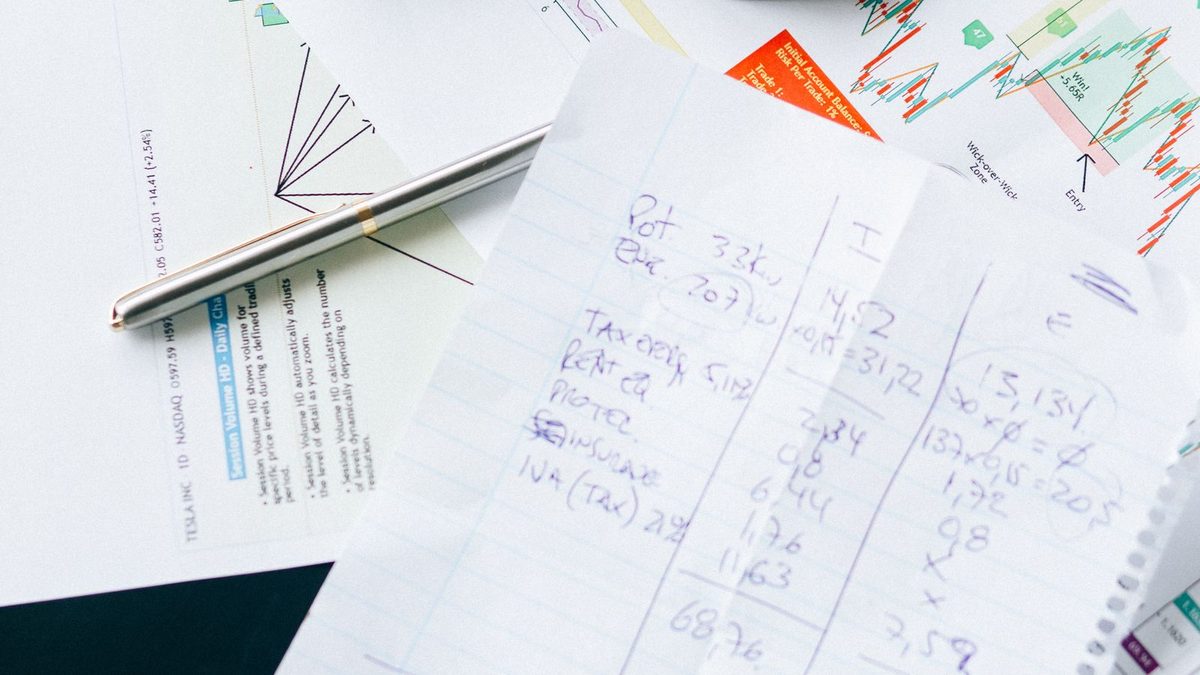 Initial Account Balance:
Risk Per Trade: 1%
Trade 1:
47
Win!
-5.65R
Wick-over-Wick
Zone
Entry
6
TESLA INC 1D NASDAQ O597.59 H597 2.05 C582.01 -14.41 (+2.54%)
Session Volume HD - Daily Cha
• Session Volume HD shows volume for
specific price levels during a defined tradi
period.
• Session Volume HD automatically adjusts
the level of detail as you zoom.
• Session Volume HD calculates the number
of levels dynamically depending on
resolution.
I E
Pot 33kw 14,52 13,134
207 w x0,15 = 31,22 x 0 = 0
137x0,15 = 20,5
TAX 5,11% 2,34 1,72
RENT EQ. 0,8 0,8
PROTEC. 6,44 x
INSURANCE 1,76 x
IVA (TAX) 21% 11,63 7,59
68,76